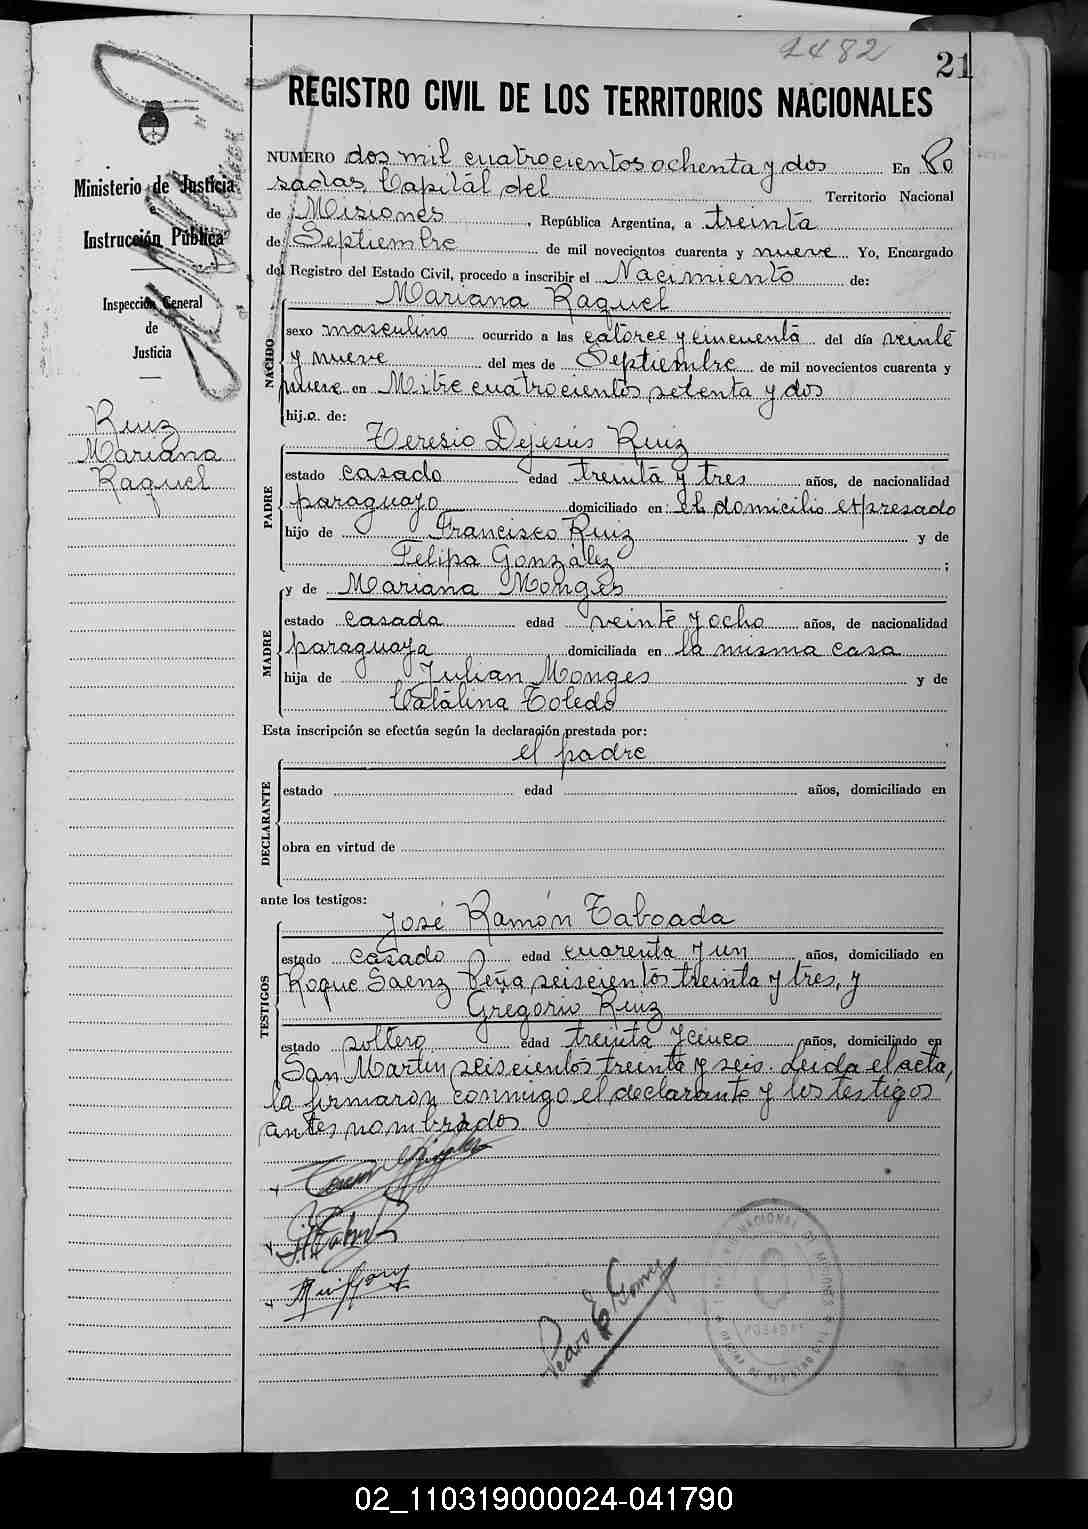 2482
21
REGISTRO CIVIL DE LOS TERRITORIOS NACIONALES
Ministerio de Justicia
e
Instrucción Pública
Inspección General
de
Justicia
Ruiz
Mariana
Raquel
NUMERO dos mil cuatrocientos ochenta y dos En Po
sadas, Capitál del Territorio Nacional
de Misiones, República Argentina, a treinta
de Septiembre de mil novecientos cuarenta y nueve Yo, Encargado
del Registro del Estado Civil, procedo a inscribir el Nacimiento de:
NACIDO
Mariana Raquel
sexo masculino ocurrido a las catorce y cincuenta del día veinte
y nueve del mes de Septiembre de mil novecientos cuarenta y
nueve en Mitre cuatrocientos setenta y dos
hijo de:
PADRE
Teresio Dejesús Ruiz
estado casado edad treinta y tres años, de nacionalidad
paraguayo domiciliado en: el domicilio expresado
hijo de Francisco Ruiz y de
Felipa González ;
MADRE
y de Mariana Monges
estado casada edad veinte y ocho años, de nacionalidad
paraguaya domiciliada en la misma casa
hija de Julian Monges y de
Catálina Toledo
Esta inscripción se efectúa según la declaración prestada por:
el padre
DECLARANTE
estado edad años, domiciliado en
obra en virtud de
ante los testigos:
TESTIGOS
José Ramón Taboada
estado casado edad cuarenta y un años, domiciliado en
Roque Saenz Peña seiscientos treinta y tres, y
Gregorio Ruiz
estado soltero edad treinta y cinco años, domiciliado en
San Martin seiscientos treinta y seis. Leida el acta,
la firmaron conmigo el declarante y los testigos
antes nombrados
Pedro E Gomez
POSADAS
02_110319000024-041790